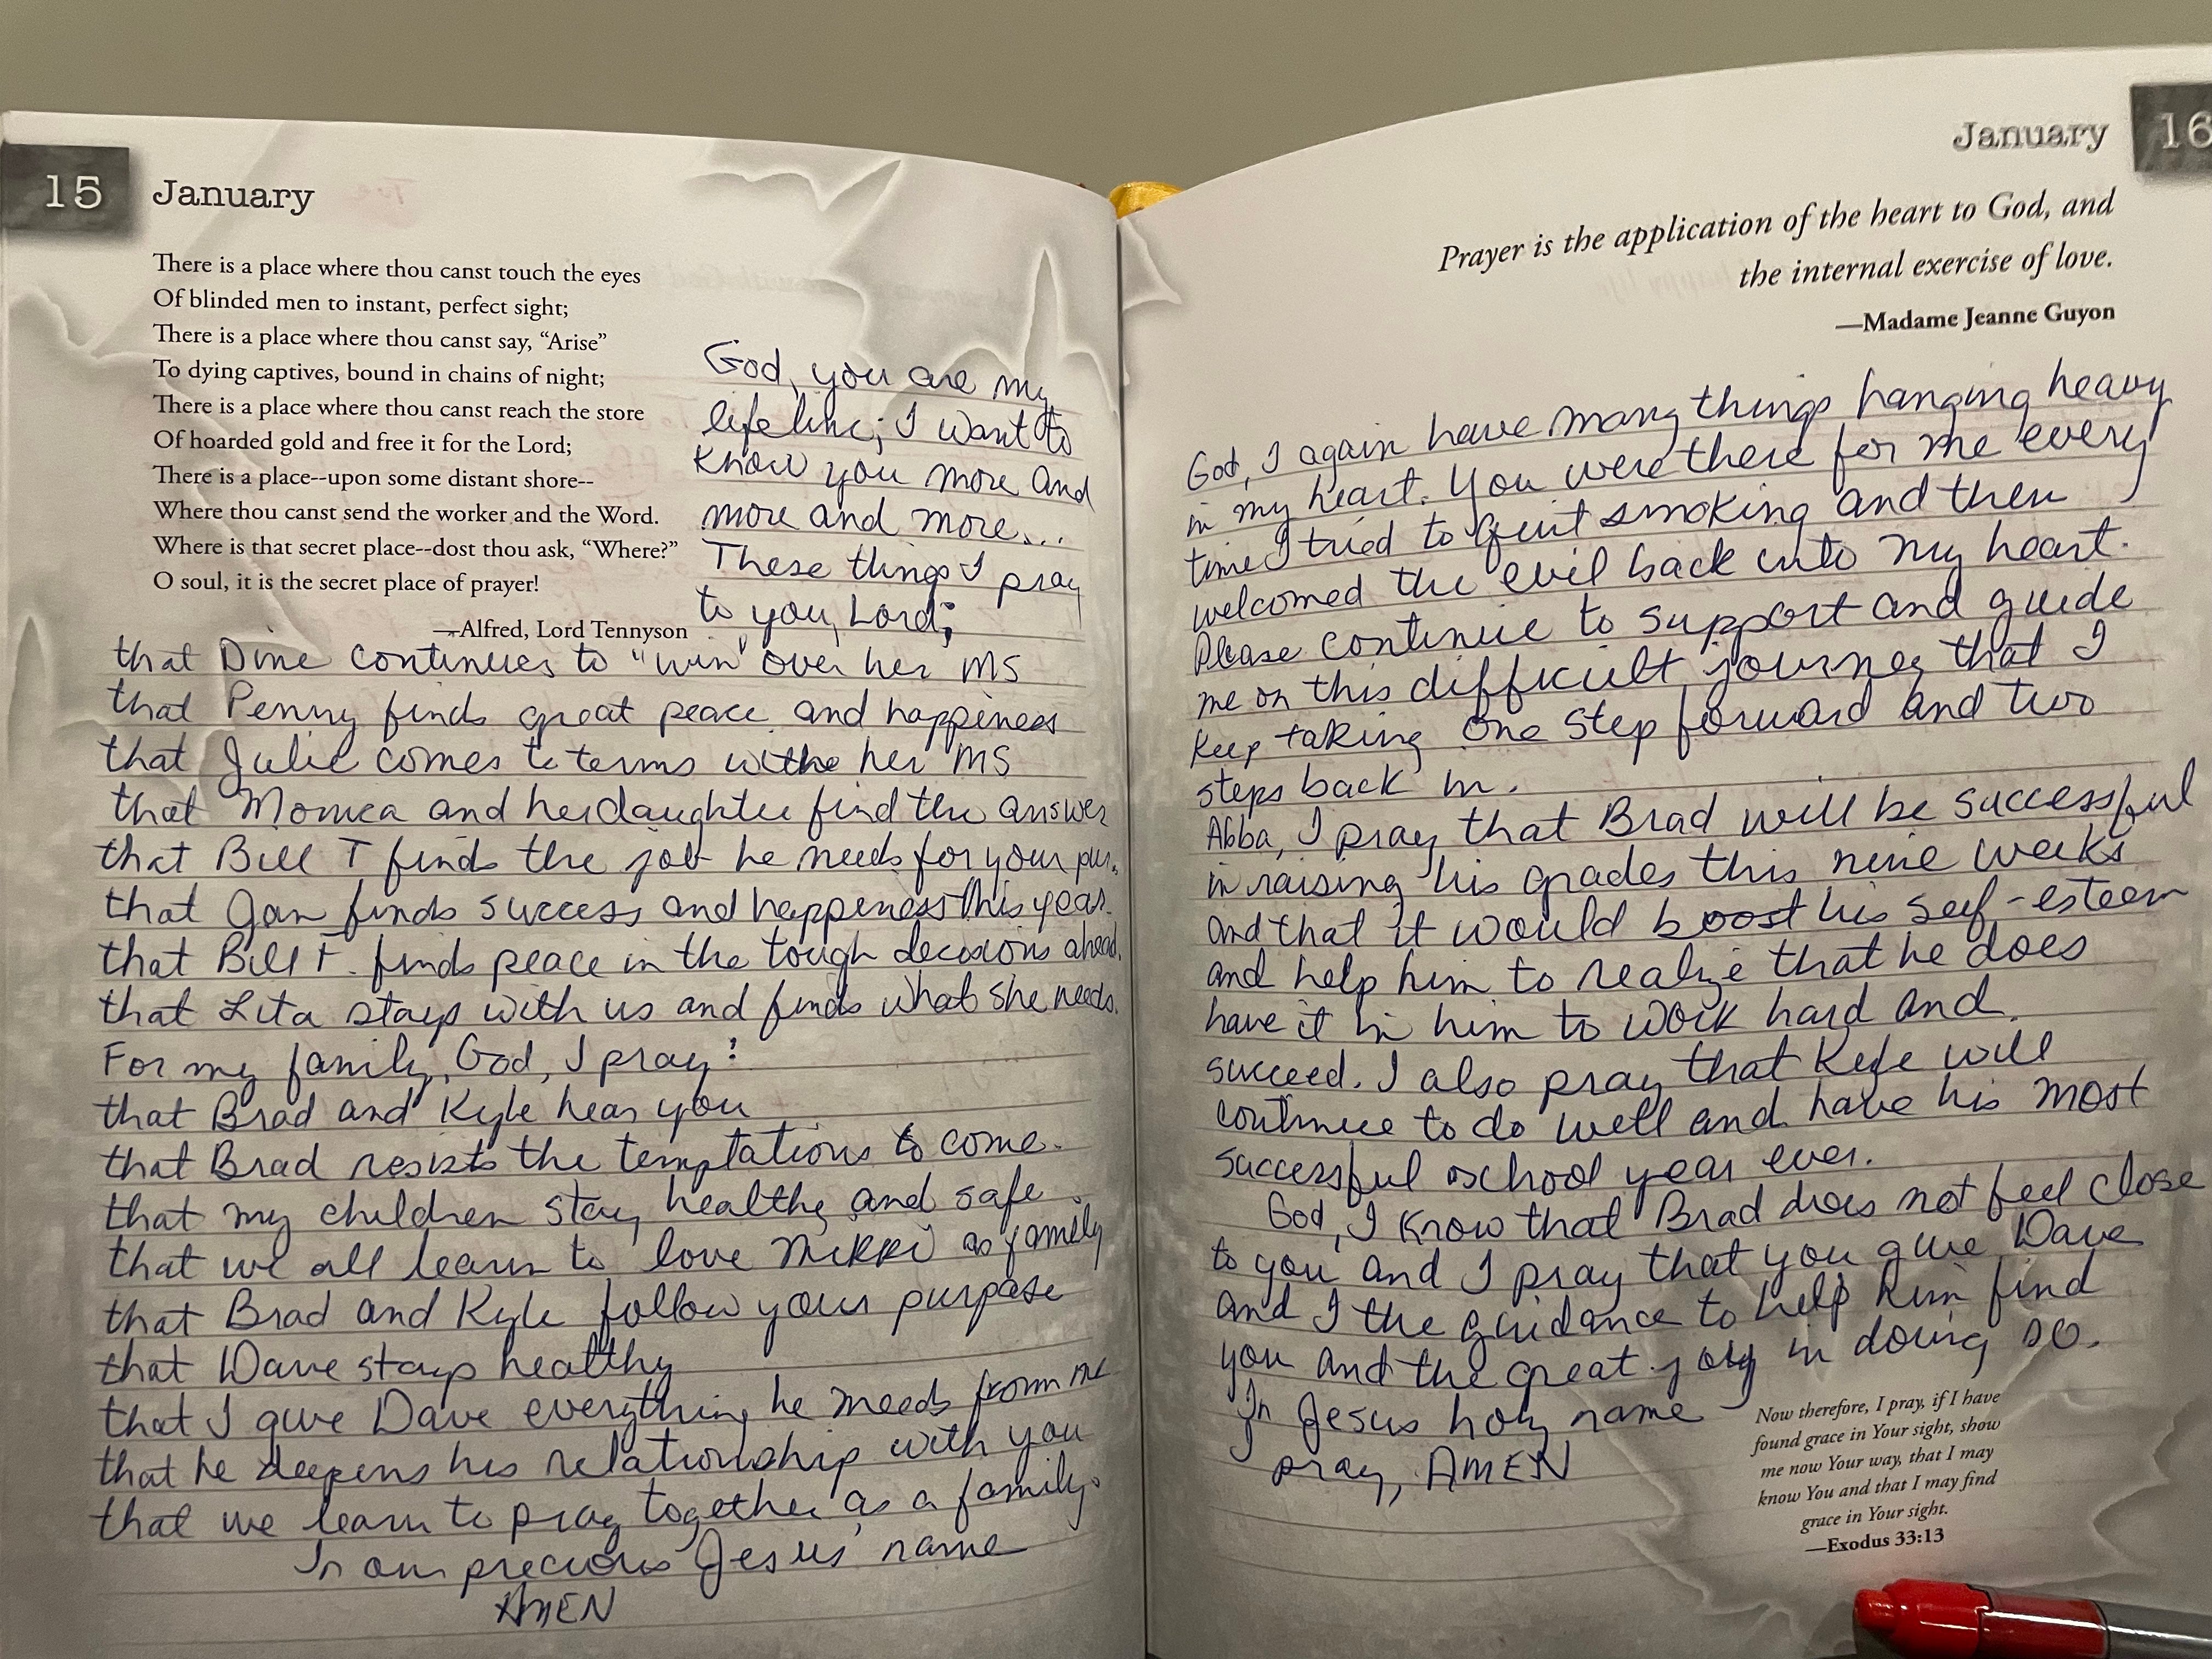 15 January
There is a place where thou canst touch the eyes
Of blinded men to instant, perfect sight;
There is a place where thou canst say, “Arise”
To dying captives, bound in chains of night;
There is a place where thou canst reach the store
Of hoarded gold and free it for the Lord;
There is a place--upon some distant shore--
Where thou canst send the worker and the Word.
Where is that secret place--dost thou ask, “Where?”
O soul, it is the secret place of prayer!
—Alfred, Lord Tennyson
God, you are my
lifeline; I want to
know you more and
more and more...
These things I pray
to you, Lord;
that Dine continues to "win" over her MS
that Penny finds great peace and happiness
that Julie comes to terms withe her MS
that Monica and her daughter find the answer
that Bill T finds the job he needs for your pur.
that Jan finds success and happeness this year.
that Bill F. finds peace in the tough decisions ahead.
that Lita stays with us and finds what she needs.
For my family, God, I pray:
that Brad and Kyle hear you
that Brad resists the temptations to come.
that my children stay healthy and safe.
that we all learn to love Nikki as family
that Brad and Kyle follow your purpose
that Dave stays healthy
that I give Dave everything he needs from me
that he deepens his relationship with you
that we learn to pray together as a family.
In our precious Jesus' name
AMEN
January 16
Prayer is the application of the heart to God, and
the internal exercise of love.
—Madame Jeanne Guyon
God, I again have many things hanging heavy
in my heart. You were there for me every
time I tried to quit smoking and then
welcomed the evil back into my heart.
Please continue to support and guide
me on this difficult journey that I
keep taking one step forward and two
steps back in.
Abba, I pray that Brad will be successful
in raising his grades this nine weeks
and that it would boost his self-esteem
and help him to realize that he does
have it in him to work hard and
succeed. I also pray that Kyle will
continue to do well and have his most
successful school year ever.
God, I know that Brad does not feel close
to you and I pray that you give Dave
and I the guidance to help him find
you and the great joy in doing so.
In Jesus holy name
pray, AMEN
Now therefore, I pray, if I have
found grace in Your sight, show
me now Your way, that I may
know You and that I may find
grace in Your sight.
—Exodus 33:13